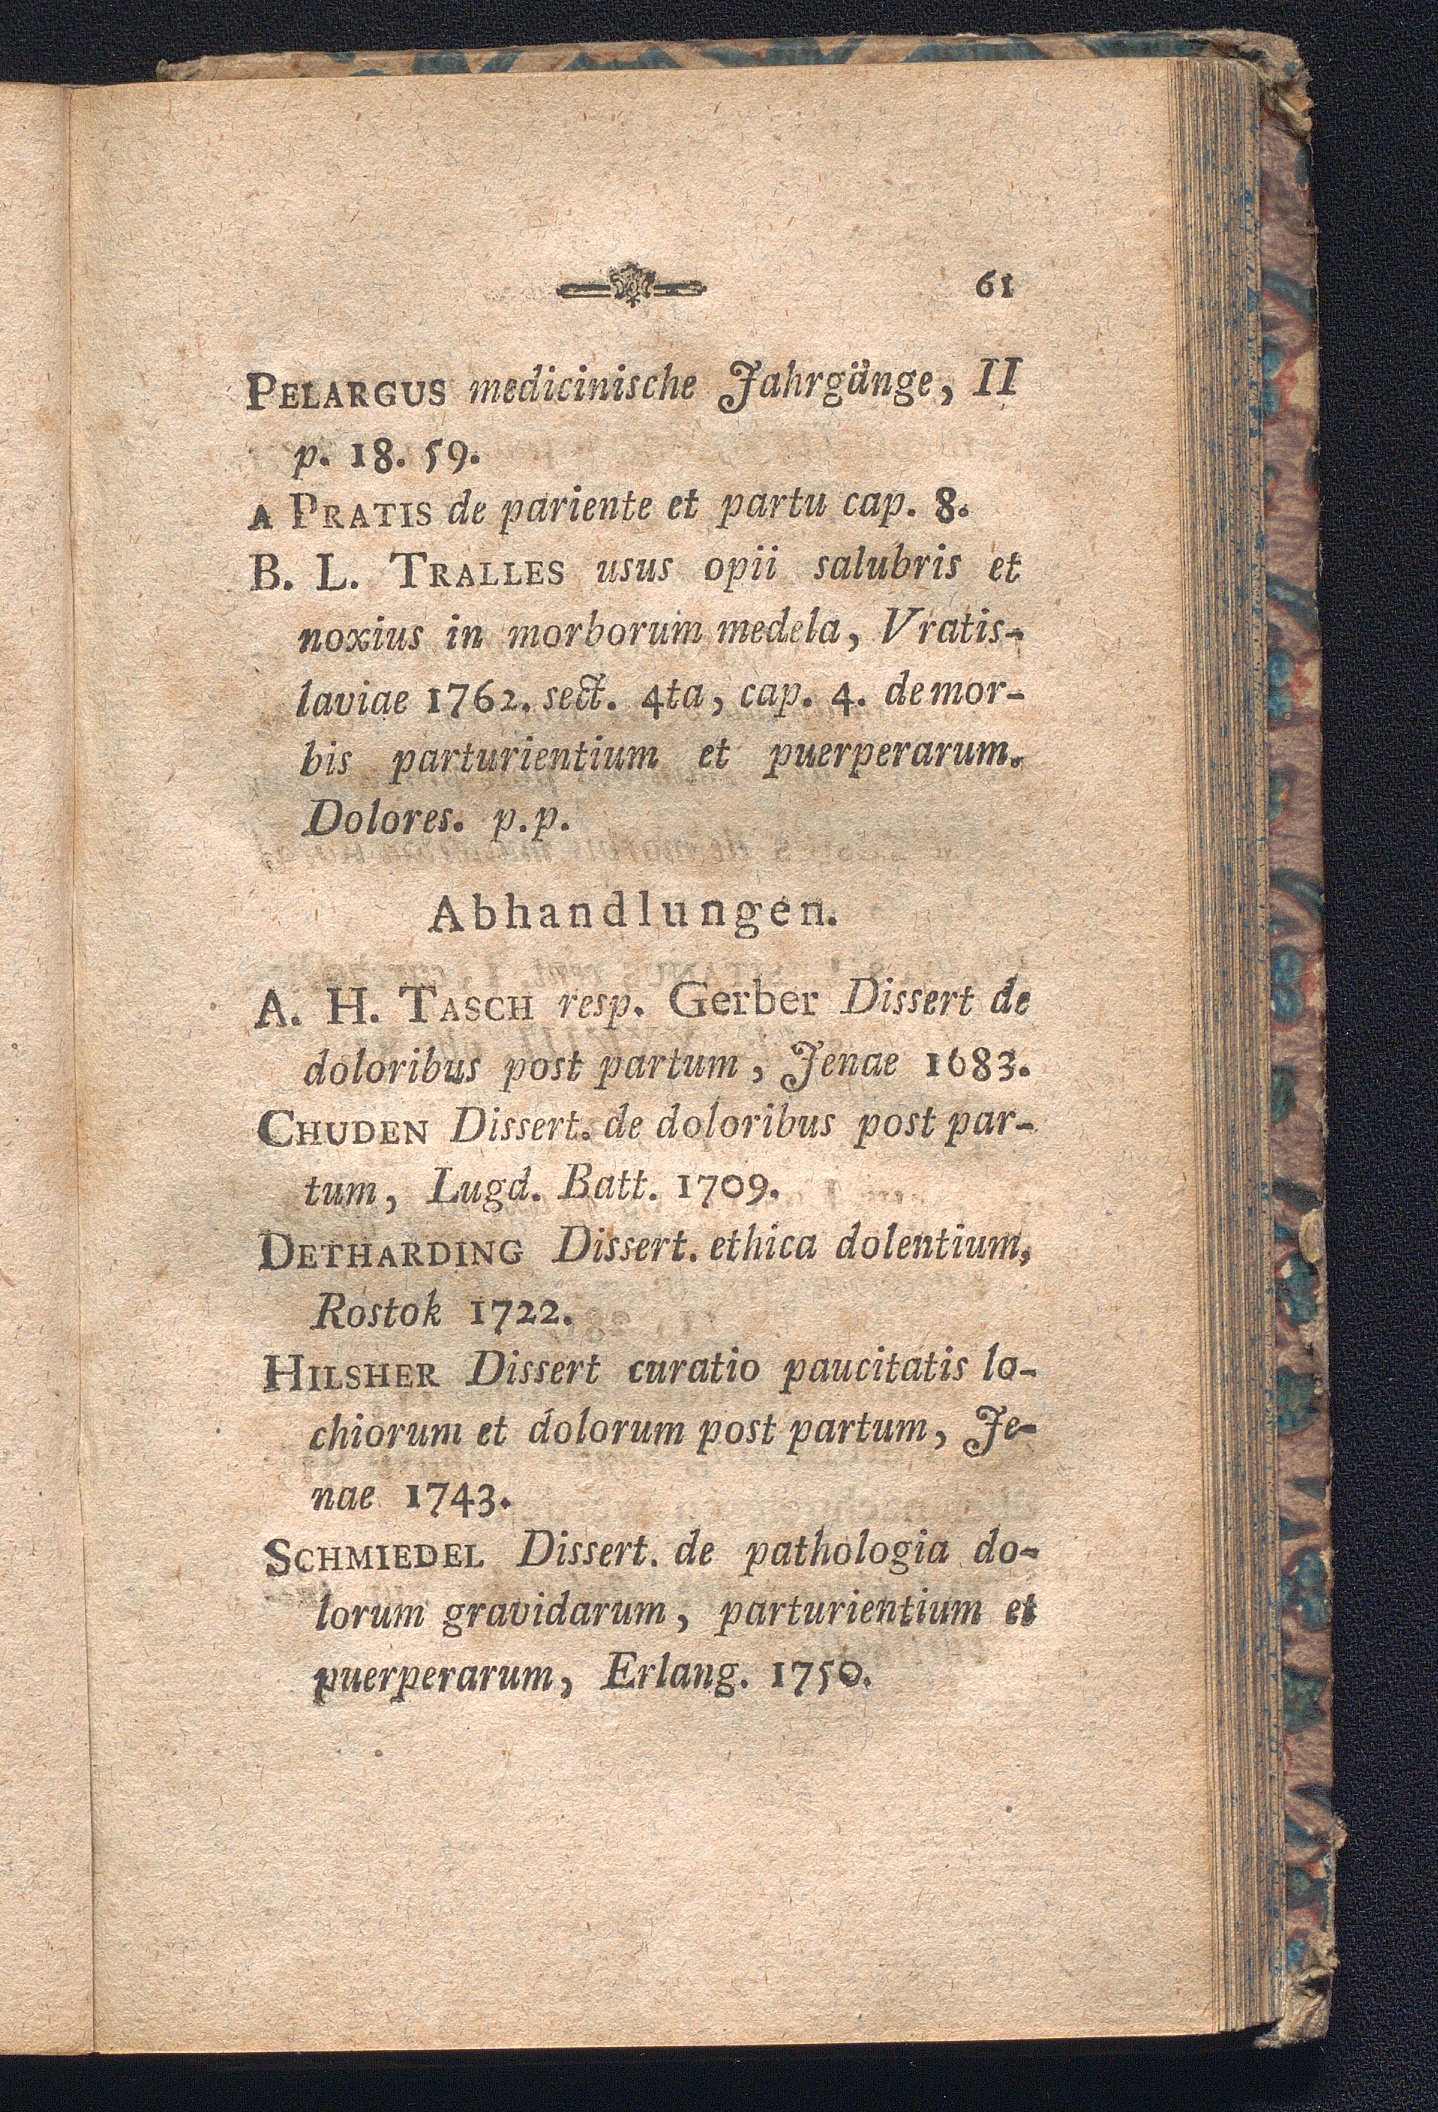 61
PELARGUS medicinische Jahrgänge, II
p. 18. 59.
A PRATIS de pariente et partu cap. 8.
B. L. TRALLES usus opii salubris et
noxius in morborum medela, Vratis-
laviae 1762. sect. 4ta, cap. 4. de mor-
bis parturientium et puerperarum.
Dolores. p.p.
Abhandlungen.
A. H. TASCH resp. Gerber Dissert de
doloribus post partum, Jenae 1683.
CHUDEN Dissert. de doloribus post par-
tum, Lugd. Batt. 1709.
DETHARDING Dissert. ethica dolentium,
Rostok 1722.
HILSHER Dissert curatio paucitatis lo-
chiorum et dolorum post partum, Je-
nae 1743.
SCHMIEDEL Dissert. de pathologia do-
lorum gravidarum, parturientium et
puerperarum, Erlang. 1750.